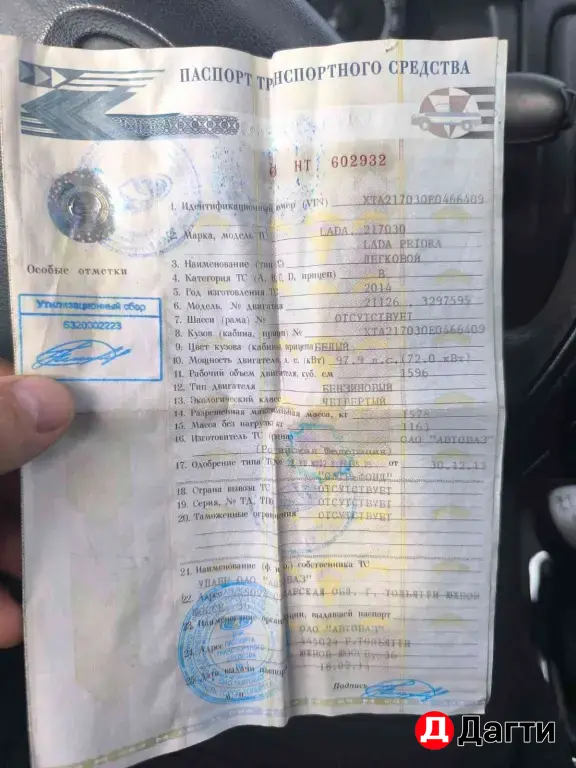 ПАСПОРТ ТРАНСПОРТНОГО СРЕДСТВА
НТ 602932
1. Идентификационный номер (VIN) XTA217030E0466409
2. Марка, модель ТС LADA, 217030
LADA PRIORA
3. Наименование (тип ТС) ЛЕГКОВОЙ
4. Категория ТС (А, В, С, D, прицеп) В
5. Год изготовления ТС 2014
6. Модель, № двигателя 21126, 3297595
7. Шасси (рама) № ОТСУТСТВУЕТ
8. Кузов (кабина, прицеп) № XTA217030E0466409
9. Цвет кузова (кабины, прицепа) БЕЛЫЙ
10. Мощность двигателя, л. с. (кВт) 97.9 л.с.(72.0 кВт)
11. Рабочий объем двигателя, куб. см 1596
12. Тип двигателя БЕНЗИНОВЫЙ
13. Экологический класс ЧЕТВЕРТЫЙ
14. Разрешенная максимальная масса, кг 1578
15. Масса без нагрузки, кг 1163
16. Изготовитель ТС (страна) ОАО "АВТОВАЗ"
(Российская Федерация)
17. Одобрение типа ТС № от 30.12.13
18. Страна вывоза ТС ОТСУТСТВУЕТ
19. Серия, № ТД, ТПО ОТСУТСТВУЕТ
20. Таможенные ограничения ОТСУТСТВУЕТ
21. Наименование (ф. и. о.) собственника ТС
ОАО "АВТОВАЗ"
22. Адрес САМАРСКАЯ ОБЛ, Г. ТОЛЬЯТТИ ЮЖНОЕ
23. Наименование организации, выдавшей паспорт
ОАО "АВТОВАЗ"
24. Адрес 445024 Г.ТОЛЬЯТТИ
ЮЖНОЕ ШОССЕ, 36
25. Дата выдачи паспорта
М. П. Подпись
Особые отметки
Утилизационный сбор
Дагти